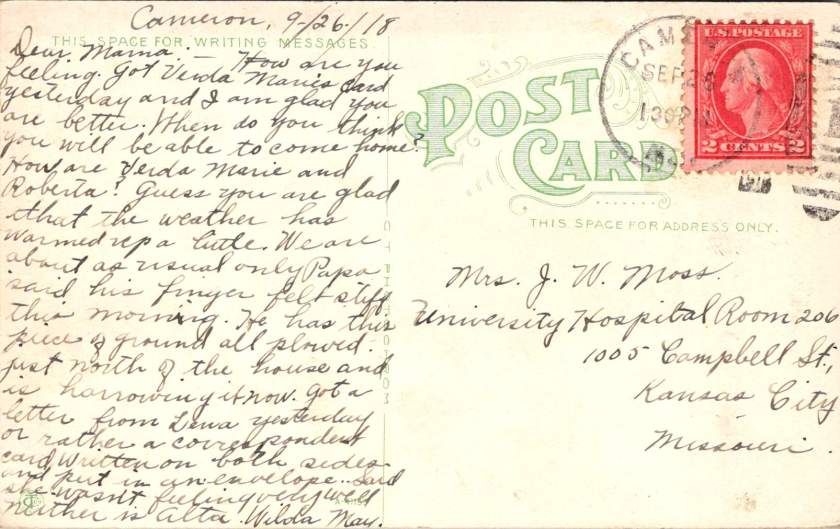 Cameron, 9-/26-/18
THIS SPACE FOR WRITING MESSAGES.
Dear Mama:— How are you
feeling. Got Verda Marie's card
yesterday and I am glad you
are better. When do you think
you will be able to come home?
How are Verda Marie and
Roberta? Guess you are glad
that the weather has
warmed up a little. We are
about as usual only Papa
said his finger felt stiff
this morning. He has this
piece of ground all plowed
just north of the house and
is harrowing it now. Got a
letter from Leva yesterday
or rather a correspondent
card written on both sides
and put in an envelope. Said
she wasn't feeling very well
neither is Alta. Wilda May.
POST
CARD
THIS SPACE FOR ADDRESS ONLY.
CAMERON
SEP 26
130 P M
MO.
1918
U.S. POSTAGE
2 CENTS 2
Mrs. J. W. Moss.
University Hospital Room 206
1005 Campbell St,
Kansas City
Missouri.